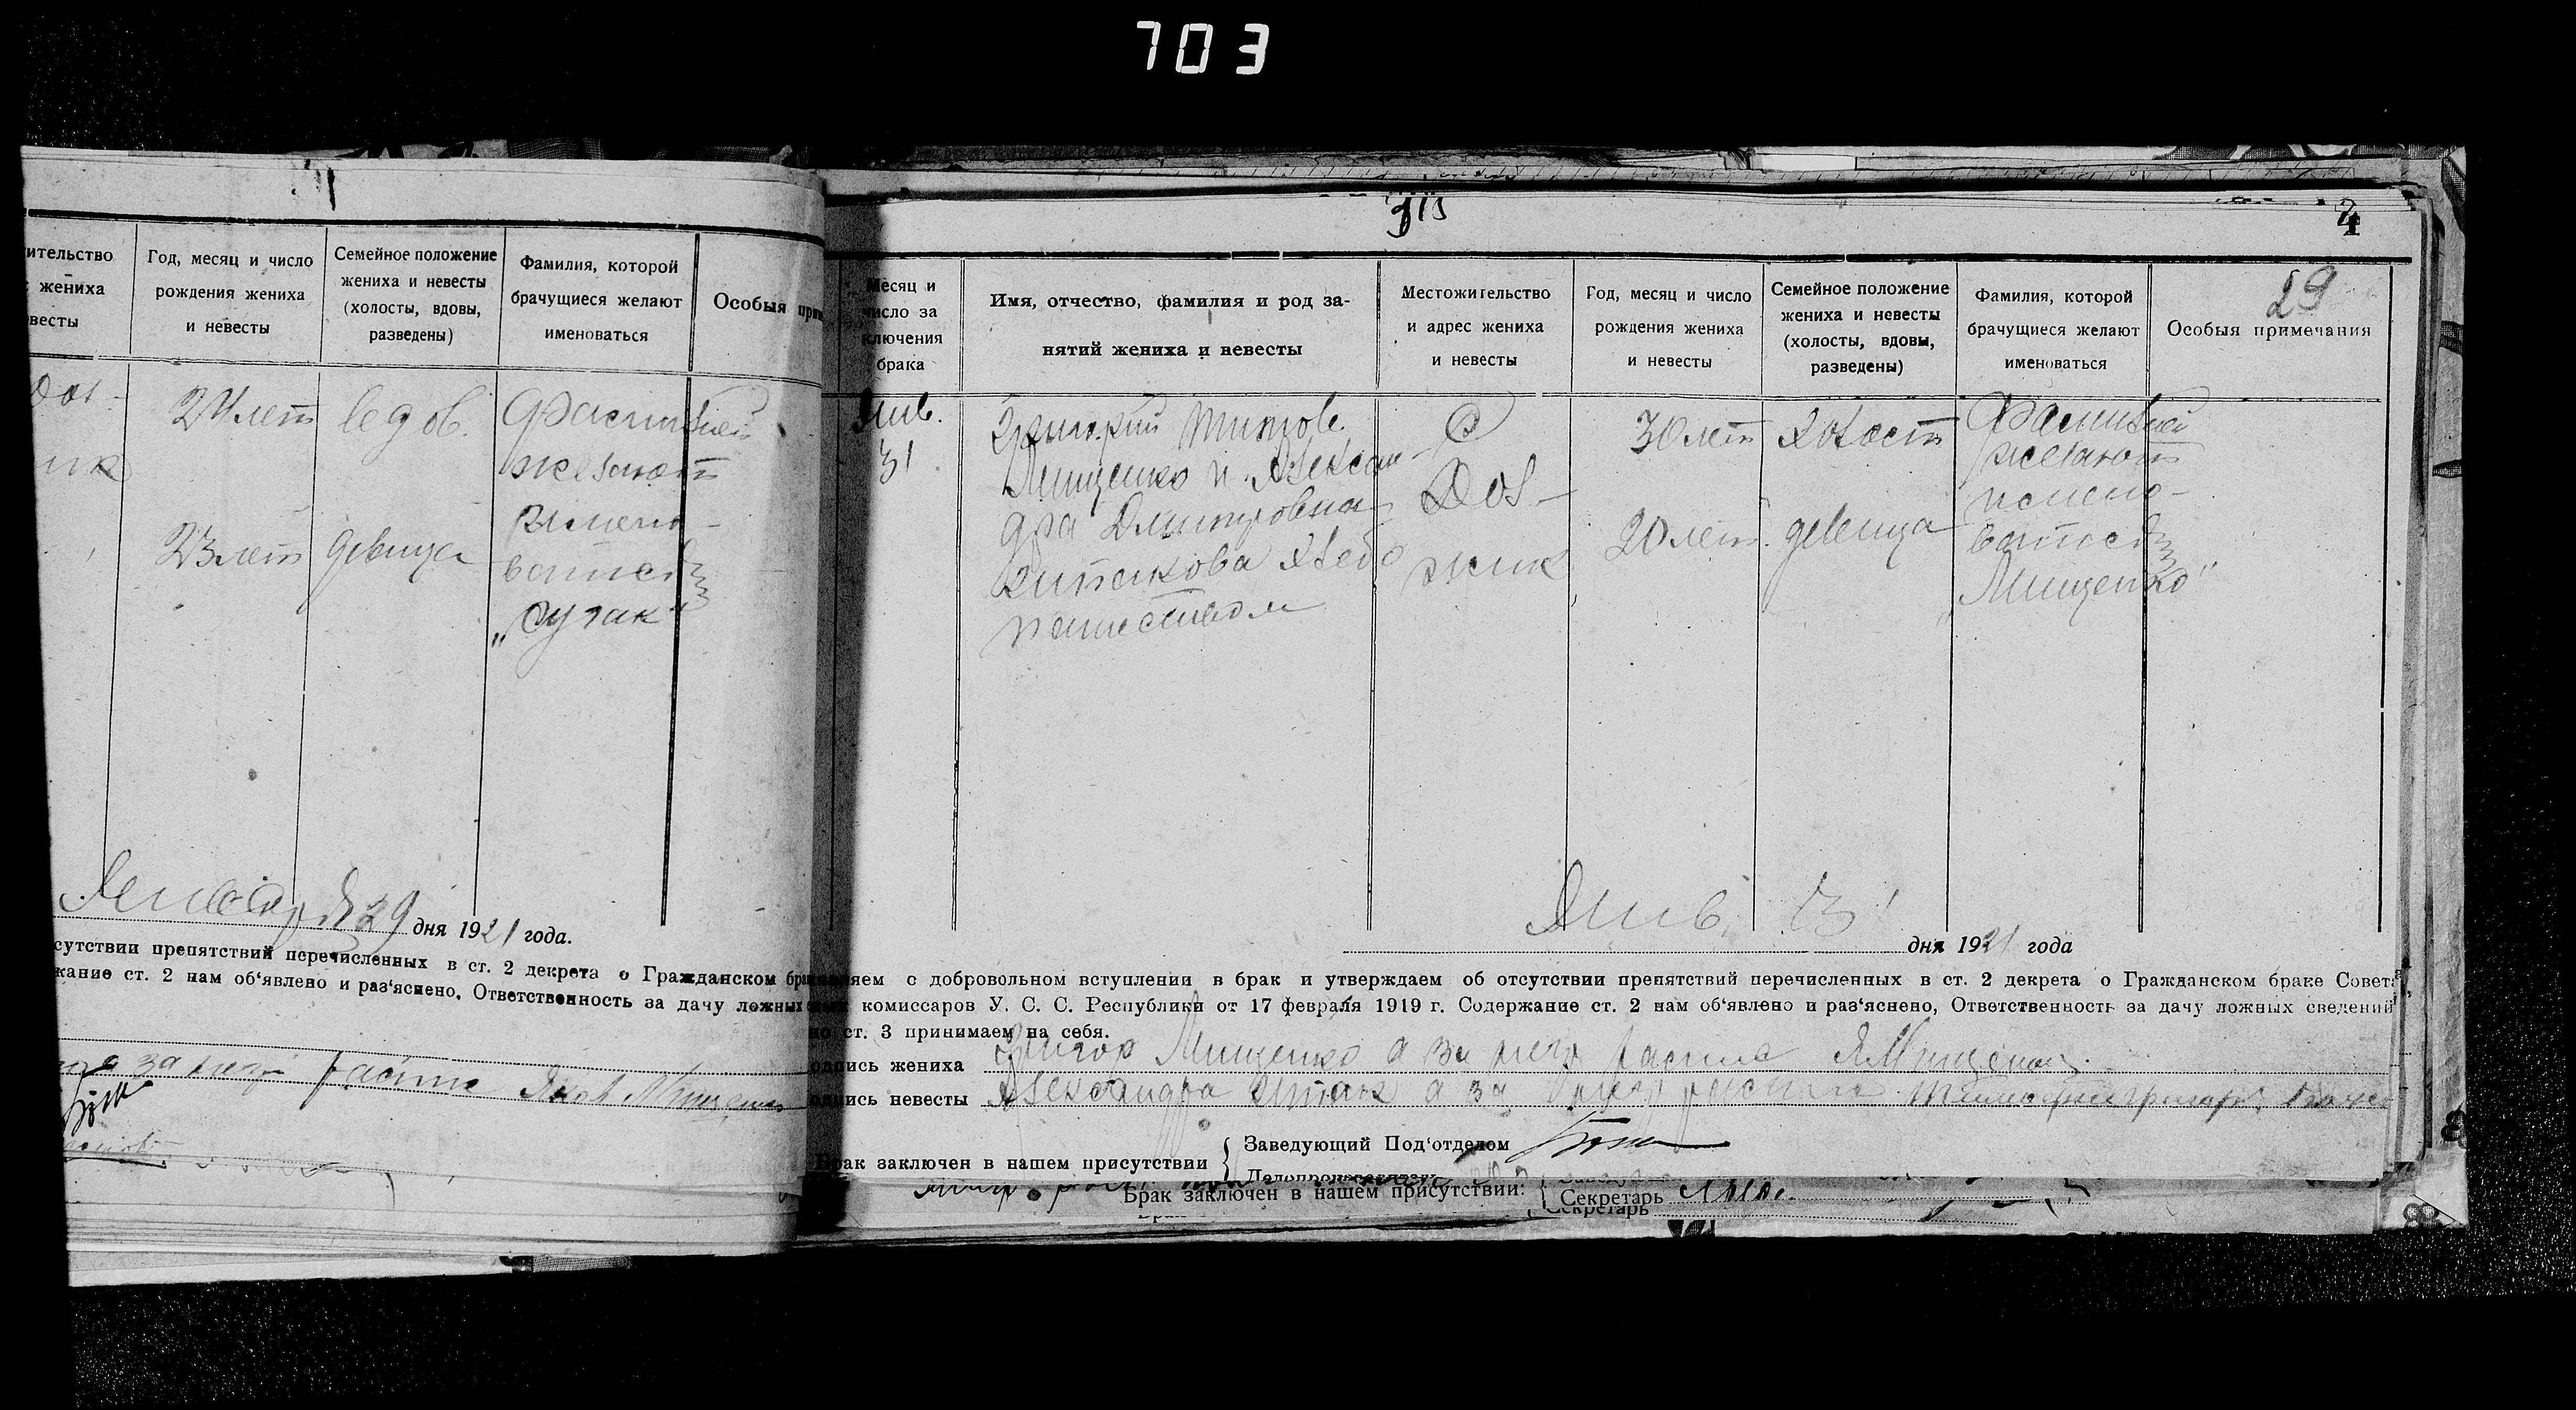 703
ительство
жениха
весты
Год, месяц и число
рождения жениха
и невесты
Семейное положение
жениха и невесты
(холосты, вдовы,
разведены)
Фамилия, которой
брачущиеся желают
именоваться
Особыя прим
24 лет
вдов.
Фамилией
желают
имено-
ватся
"Сутак"
23 лет
девица
Январ 29 дня 1921 года.
сутствии препятствий перечисленных в ст. 2 декрета о Гражданском бра
жание ст. 2 нам об'явлено и раз'яснено. Ответственность за дачу ложных
за него распис Яков Мищенко
4
29
Месяц и
число за
ключения
брака
Имя, отчество, фамилия и род за-
нятий жениха и невесты
Местожительство
и адрес жениха
и невесты
Год, месяц и число
рождения жениха
и невесты
Семейное положение
жениха и невесты
(холосты, вдовы,
разведены)
Фамилия, которой
брачущиеся желают
именоваться
Особыя примечания
Янв.
31
Григорий Титов.
Мищенко и Алексан-
дра Дмитровна
хлебо
пашеством
С
Дол-
жик
30 лет
20 лет.
холост
девица
Фамилией
желают
имено-
ватся
"Мищенко"
Янв. 31 дня 1921 года
ляем о добровольном вступлении в брак и утверждаем об отсутствии препятствий перечисленных в ст. 2 декрета о Гражданском браке Совета
комиссаров У. С. С. Республики от 17 февраля 1919 г. Содержание ст. 2 нам об'явлено и раз'яснено, Ответственность за дачу ложных сведений
но ст. 3 принимаем на себя.
одпись жениха Григор Мищенко а за него распис Я Мищенко
одпись невесты Александра а за распис
Брак заключен в нашем присутствии
Заведующий Под'отделом
Делопроизводитель
Брак заключен в нашем присутствии:
Секретарь
Секретарь